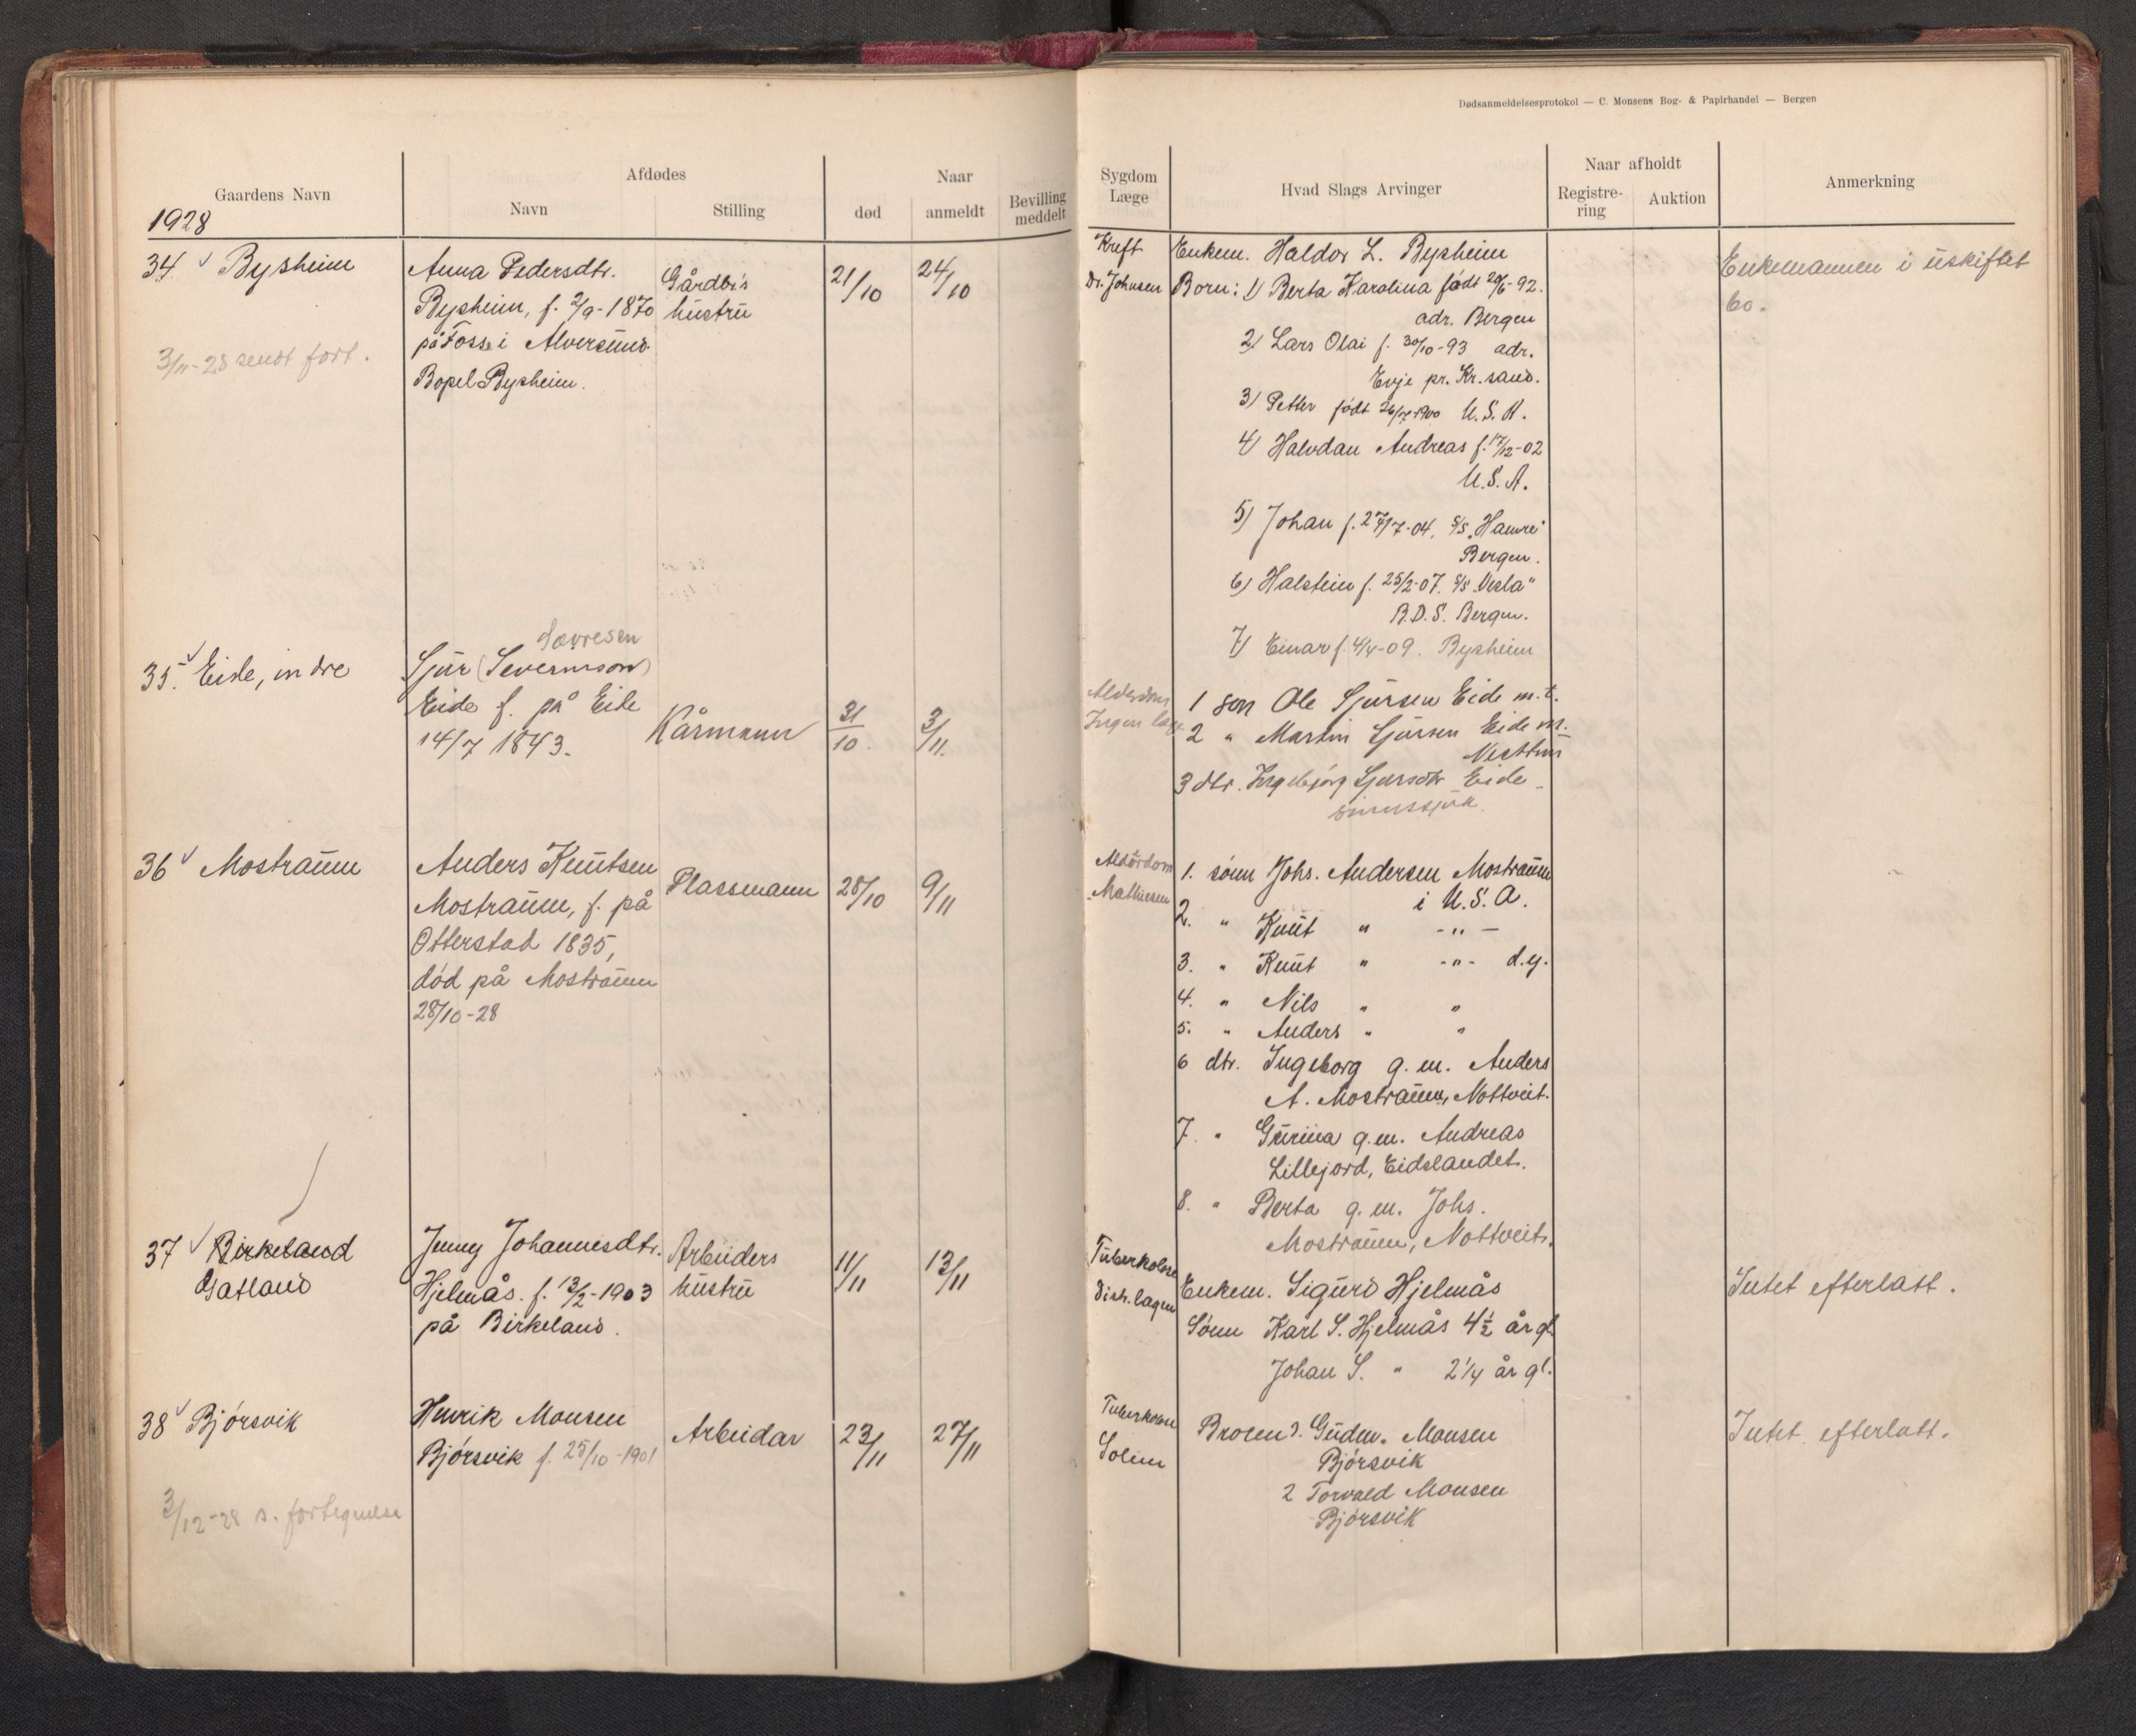 Dødsanmeldelsesprotokol — C. Monsens Bog- & Papirhandel — Bergen
Gaardens Navn
Afdødes
Navn
Stilling
Naar
død
anmeldt
Bevilling
meddelt
Sygdom
Læge
Hvad Slags Arvinger
Naar afholdt
Registre-
ring
Auktion
Anmerkning
1928
34 Bysheim
3/11-28 sendt fort.
Anna Pedersdtr.
Bysheim, f. 2/9-1870
på Fosse i Alversund
Bopel Bysheim.
Gårdbr's
hustru
21/10
24/10
Kreft
Dr. Johnsen
Enkem. Haldor L. Bysheim
Born: 1) Berta Karolina født 20/6-92.
adr. Bergen
2) Lars Olai f. 30/10-93 adr.
Evje pr. Kr.sand.
3) Petter født 26/7-1900 U.S.A.
4) Halvdan Andreas f. 17/12-02
U.S.A.
5) Johan f. 27/7-04, s/s "Hamre"
Bergen.
6) Halstein f. 25/2-07. s/s "Vesla"
B.D.S. Bergen.
7) Einar f. 4/4-09. Bysheim
Enkemannen i uskiftet
bo.
35. Eide, indre
Sjur (Severinson)
Eide f. på Eide
14/7 1843.
Kårmann
31/10.
3/11.
Alderdom
Ingen læge
1 son Ole Sjursen Eide m.t.
2 " Martin Sjursen Eide m.
Nesttun
3 dtr. Ingebjørg Sjursdtr Eide
sinnssjuk.
36 Mostraum
Anders Knutsen
Mostraum, f. på
Otterstad 1835,
død på Mostraum
28/10-28
Plassmann
28/10
9/11
Alderdom
Mathiesen
1. sønn Johs. Andersen Mostraum
i U.S.A.
2. " Knut " -"-
3. " Knut " -"- d.y.
4. " Nils " "
5. " Anders " "
6 dtr. Ingeborg g.m. Anders
A. Mostraum, Nottveit.
7. " Gurina g.m. Andreas
Lillejord, Eidslandet.
8. " Berta g.m. Johs.
Mostraum, Nottveit.
37 Birkeland
Gatland
Jenny Johannesdtr.
Hjelmås. f. 13/2-1903
på Birkeland.
Arbeiders
hustru
11/11
13/11
Tuberkolose
Distr. lægen
Enkem. Sigurd Hjelmås
Sønn Karl S. Hjelmås 4½ år gl.
Johan S. " 2¼ år gl.
Intet efterlatt.
38 Bjørsvik
3/12-28 s. fortegnelse
Henrik Monsen
Bjørsvik f. 25/10-1901
Arbeidar
23/11
27/11
Tuberkolose
Solem
Gudm. Monsen
Bjørsvik
2 Torvald Monsen
Bjørsvik
Intet efterlatt.